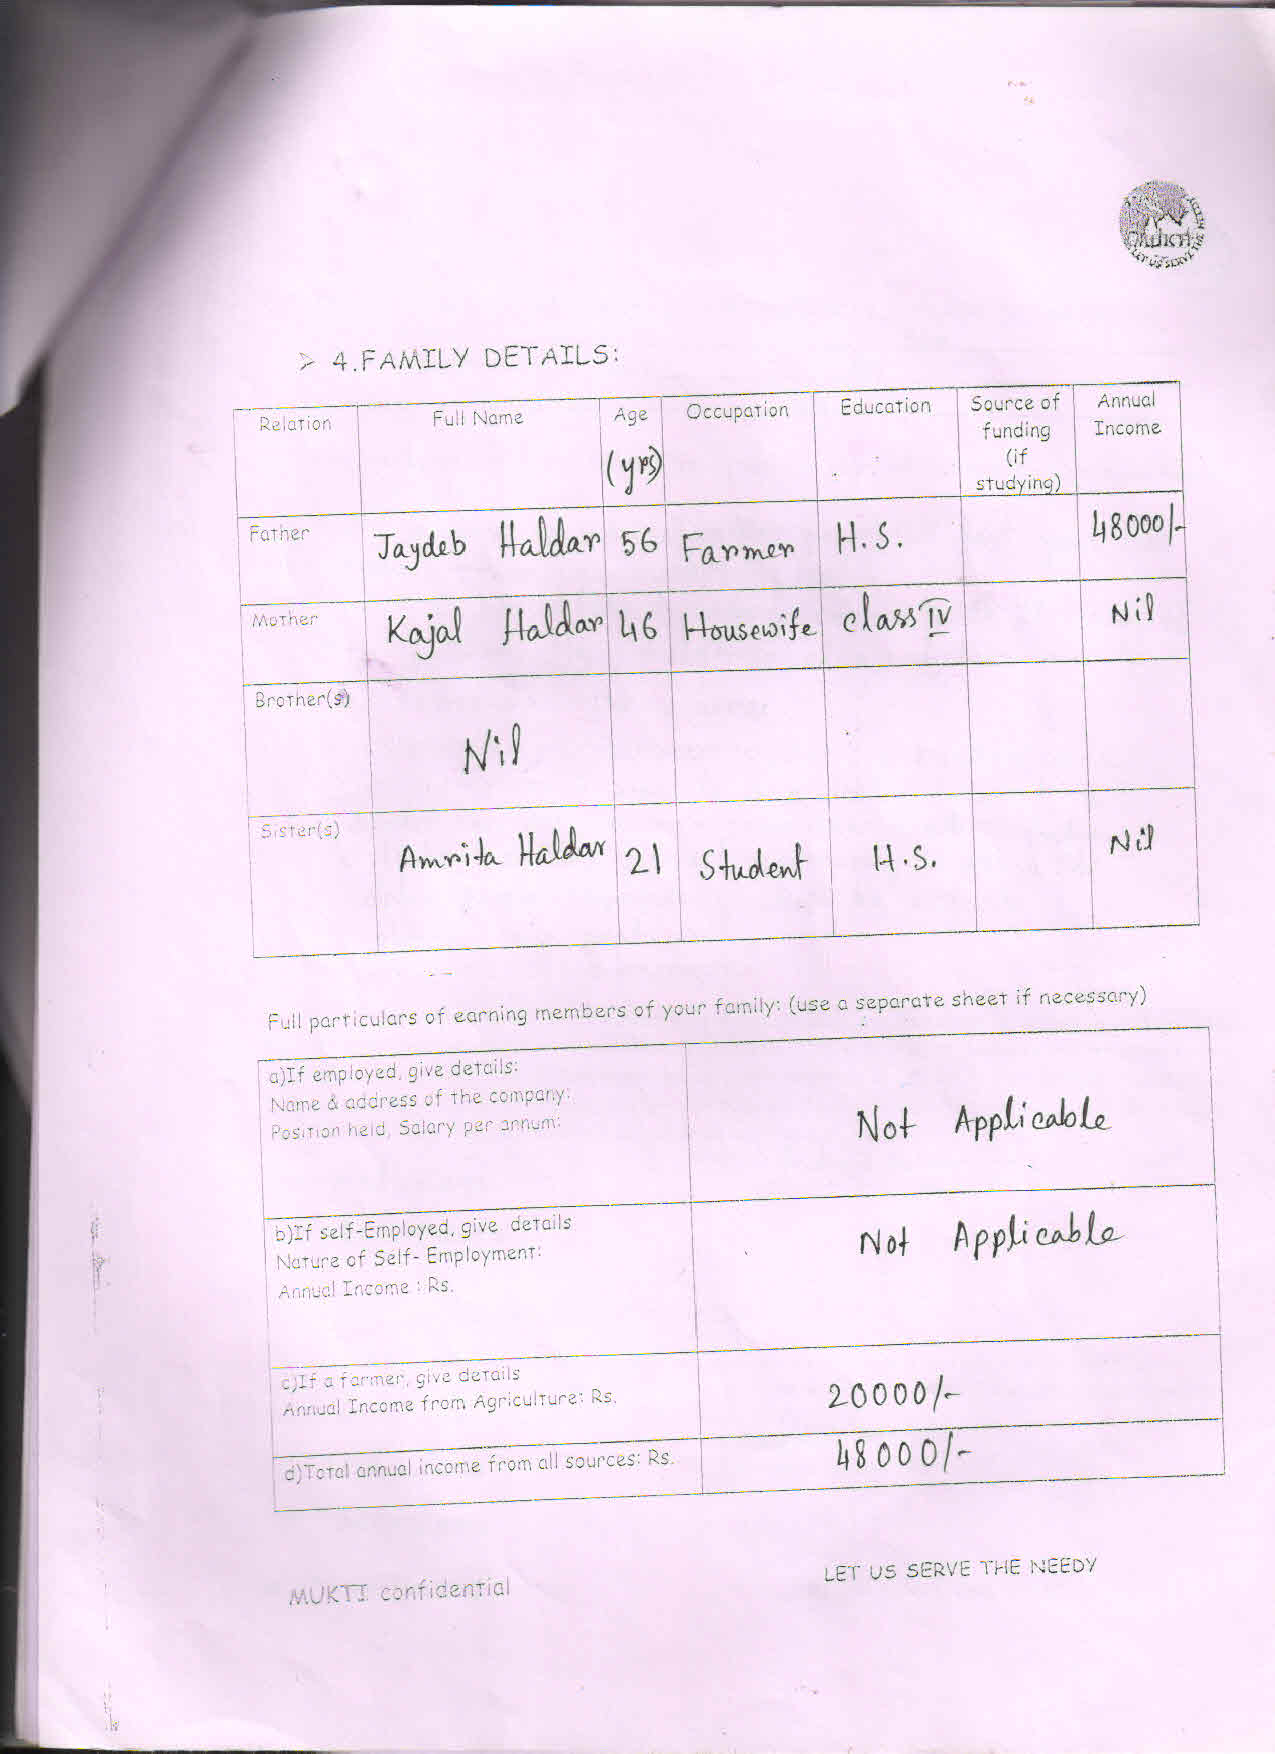 MUKTI
LET US SERVE THE NEEDY
➢ 4.FAMILY DETAILS:
Relation Full Name Age (yrs) Occupation Education Source of funding (if studying) Annual Income
Father Jaydeb Haldar 56 Farmer H.S. 48000/-
Mother Kajal Haldar 46 Housewife class IV Nil
Brother(s) Nil
Sister(s) Amrita Haldar 21 Student H.S. Nil
Full particulars of earning members of your family: (use a separate sheet if necessary)
a)If employed, give details:
Name & address of the company:
Position held, Salary per annum:
Not Applicable
b)If self-Employed, give details
Nature of Self- Employment:
Annual Income : Rs.
Not Applicable
c)If a farmer, give details
Annual Income from Agriculture: Rs.
20000/-
d)Total annual income from all sources: Rs.
48000/-
MUKTI confidential
LET US SERVE THE NEEDY